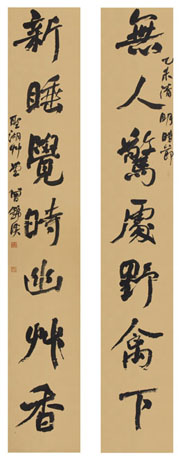 乙未清明時節
無人驚處野禽下
新睡覺時幽艸香
聖湖艸堂 曾錦溪